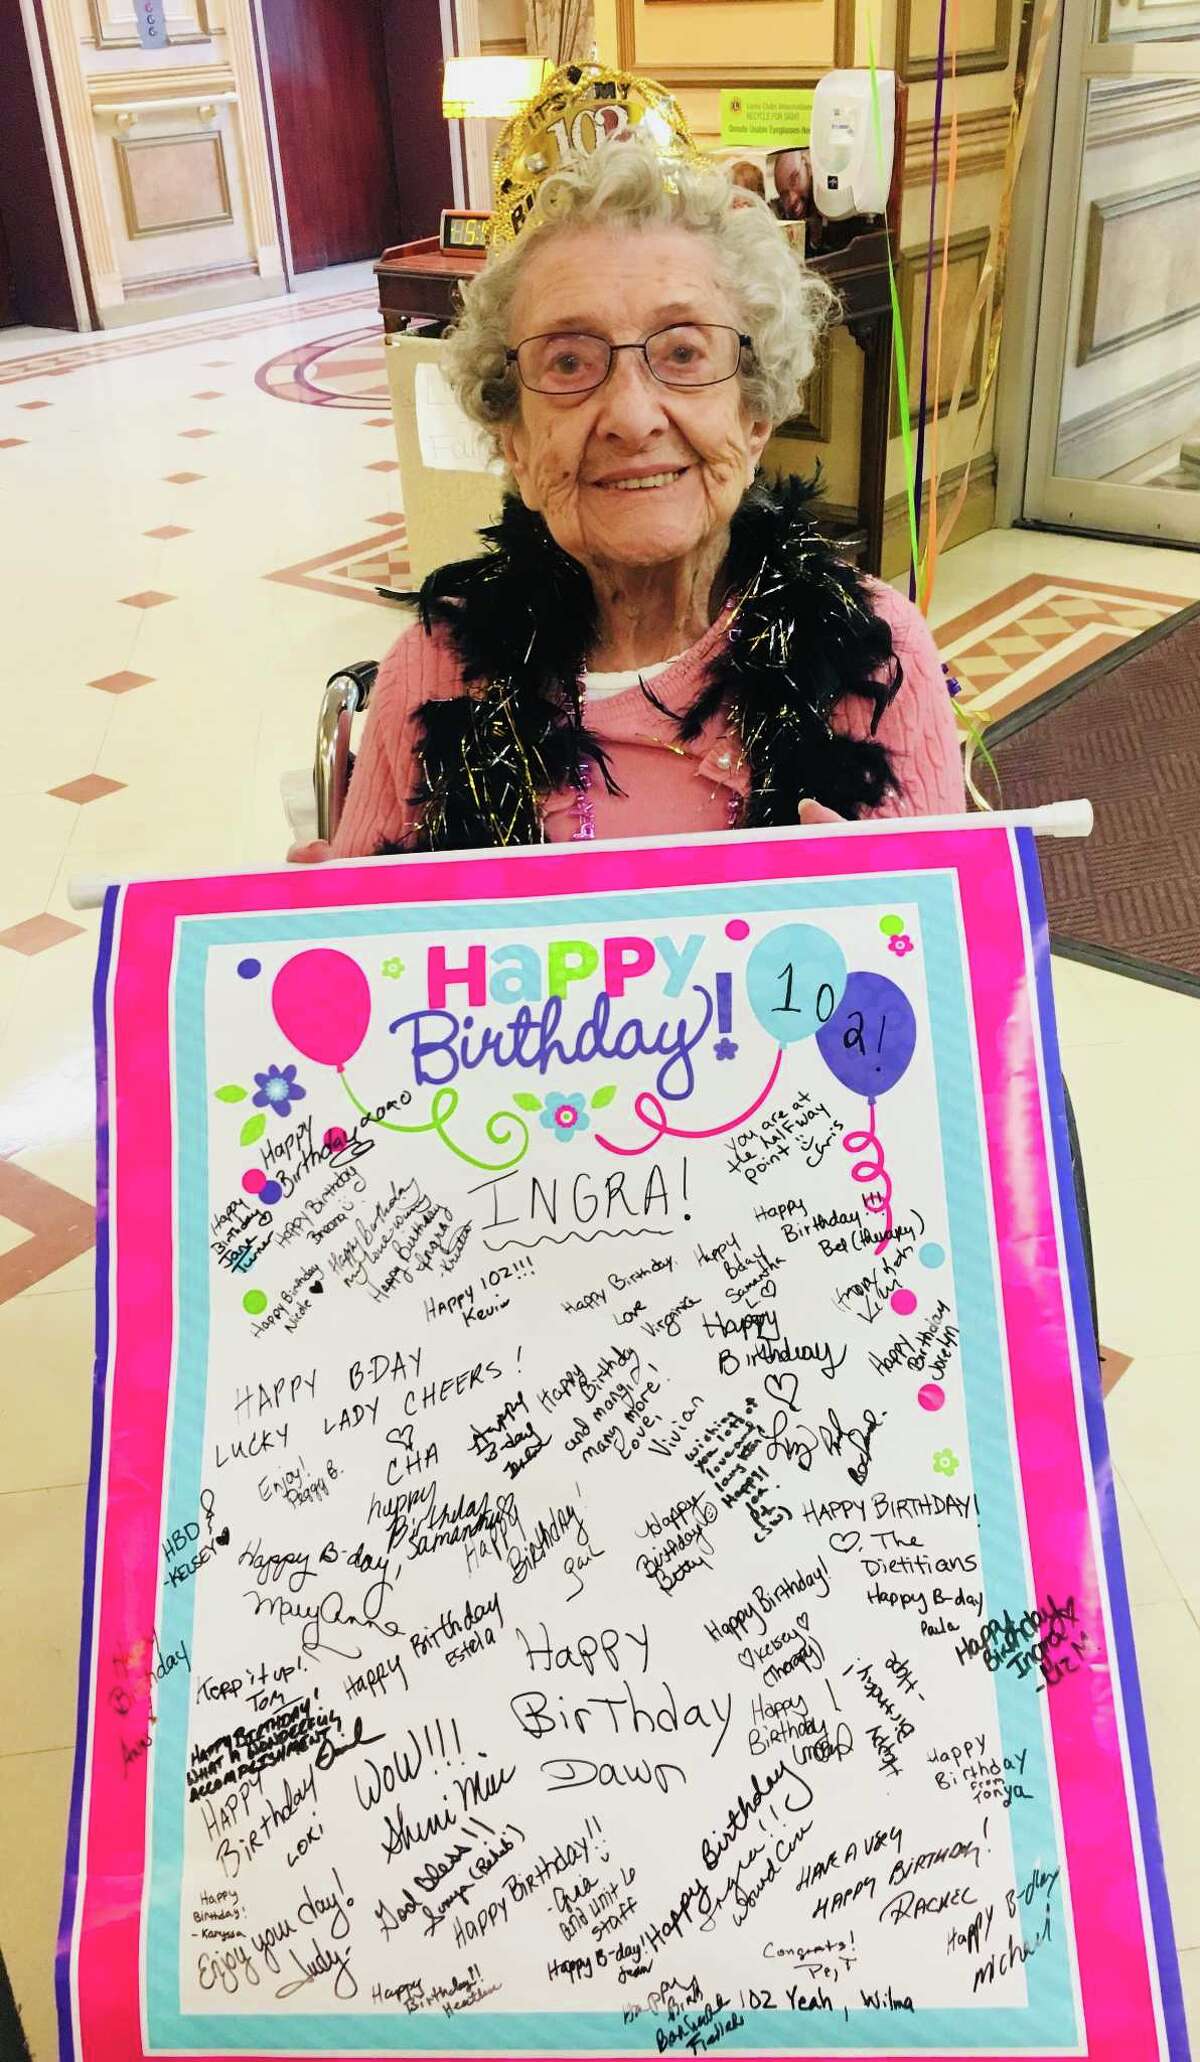 IT'S MY
102
Lions Clubs International
RECYCLE FOR SIGHT
Donate Usable Eyeglasses
Happy
Birthday!
102!
INGRA!
Happy
Birthday
xoxo
you are at
the halfway
point
Chris
Happy
Birthday
Jane
Turner
Happy Birthday
Breana
Happy Birthday
my love
Happy Birthday
Ingra
Krista
Happy
Birthday!!!
Bel (therapy)
Happy Birthday
Nicole
Happy 102!!!
Kevin
Happy Birthday.
Love
Virginia
Happy
Bday
Samantha
Kim
Happy
Birthday
Jocelyn
Happy
Birthday
Liz
HAPPY B-DAY
LUCKY LADY CHEERS!
CHA
Happy
B-day
Happy
Birthday
and many,
many more!
Love,
Vivian
Wishing
you lots of
love and
laughter!
Happy!!
102
Pt
(SW)
Enjoy!
Peggy B.
HBD
-KELSEY
happy
Birthday
Samantha
Happy B-day,
Mary Anne
Happy
Birthday!
Gail
Happy
Birthday
Betty
HAPPY BIRTHDAY!
The
Dietitians
Happy B-day
Paula
Happy
Birthday
Ingra
-Liz M
Happy
Birthday
Ann
Torp it up!
Tom
Happy Birthday
Estela
Happy
Birthday
Dawn
Happy Birthday!
Kelsey
(Therapy)
HAPPY BIRTHDAY!
WHAT A WONDERFUL
ACCOMPLISHMENT!
Happy
Birthday!
Happy
Birthday
from
Tonya
HAPPY
Birthday
LOKI
WOW!!!
God Bless!!
Sumaya (Rehab)
Happy Birthday
Ingra!!
HAVE A VERY
HAPPY BIRTHDAY!
RACHEL
Happy
Birthday!
-Karyssa
Enjoy your day!
Judy
Happy Birthday!!
and unit 6
staff
Happy B-day!!
Happy B-day
Michael
Happy
Birthday!!
Heather
Congrats!
Happy
Birth
102 Yeah, Wilma